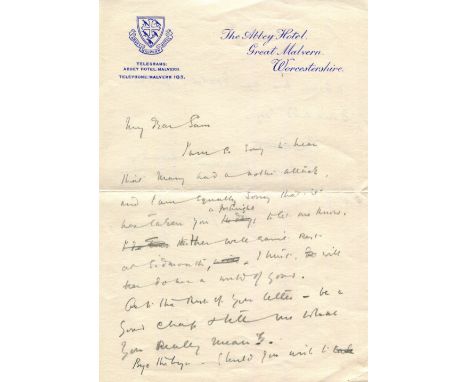 The Abbey Hotel,
Great Malvern,
Worcestershire.
TELEGRAMS:
ABBEY HOTEL, MALVERN.
TELEPHONE: MALVERN 183.
My Dear Sam
I am so sorry to hear
that Mary had a attack,
and I am equally sorry that it
has taken you a fortnight to let me know.
well
at Sidmouth, I trust, will
her a world of good.
the rest of your letter - be a
good chap & tell me what
you really mean?.
Bye the bye - should you wish to